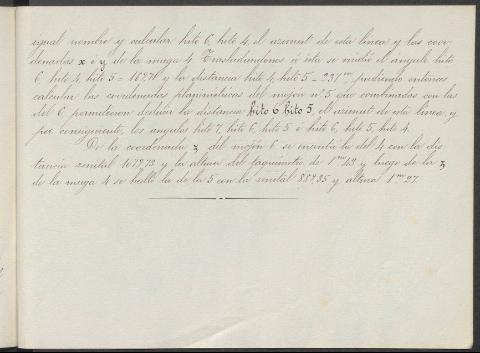 igual nombre y calcular hito 6, hito 4, el azimut de esta línea y las coor-
denadas x é y de la muga 4. Trasladándonos á ésta se midió el ángulo hito
6, hito 4, hito 5 = y la distancia hito 4, hito 5 = 231m, pudiendo entonces
calcular las coordenadas planimétricas del mojón nº 5 que combinadas con las
del 6 permitieron deducir la distancia hito 6 hito 5, el azimut de esta línea y
por consiguiente, los ángulos hito 7, hito 6, hito 5 é hito 6, hito 5, hito 4.
De la coordenada z del mojón 6 se encontró la del 4 con la dis-
tancia zenital y la altura del taquímetro de 1m43 y luego de la z
de la muga 4 se halló la de la 5 con la zenital 88º,35 y altura 1m27.